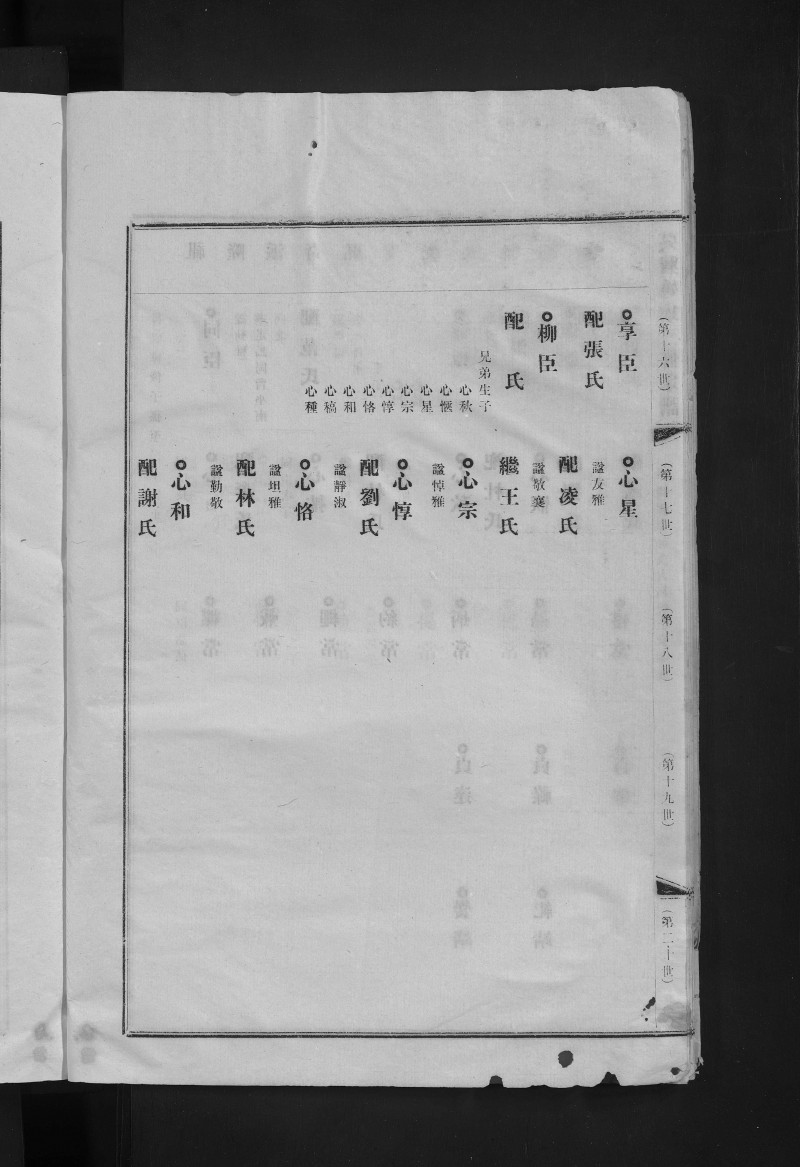 (第十六世)
(第十七世)
(第十八世)
(第十九世)
(第二十世)
享臣
配張氏
柳臣
配 氏
兄弟生子
心秋
心愜
心星
心宗
心惇
心恪
心和
心稿
心種
心星
諡友雅
配凌氏
諡敬襄
繼王氏
心宗
諡悼雅
心惇
配劉氏
諡靜淑
心恪
諡坦雅
配林氏
諡勤敬
心和
配謝氏